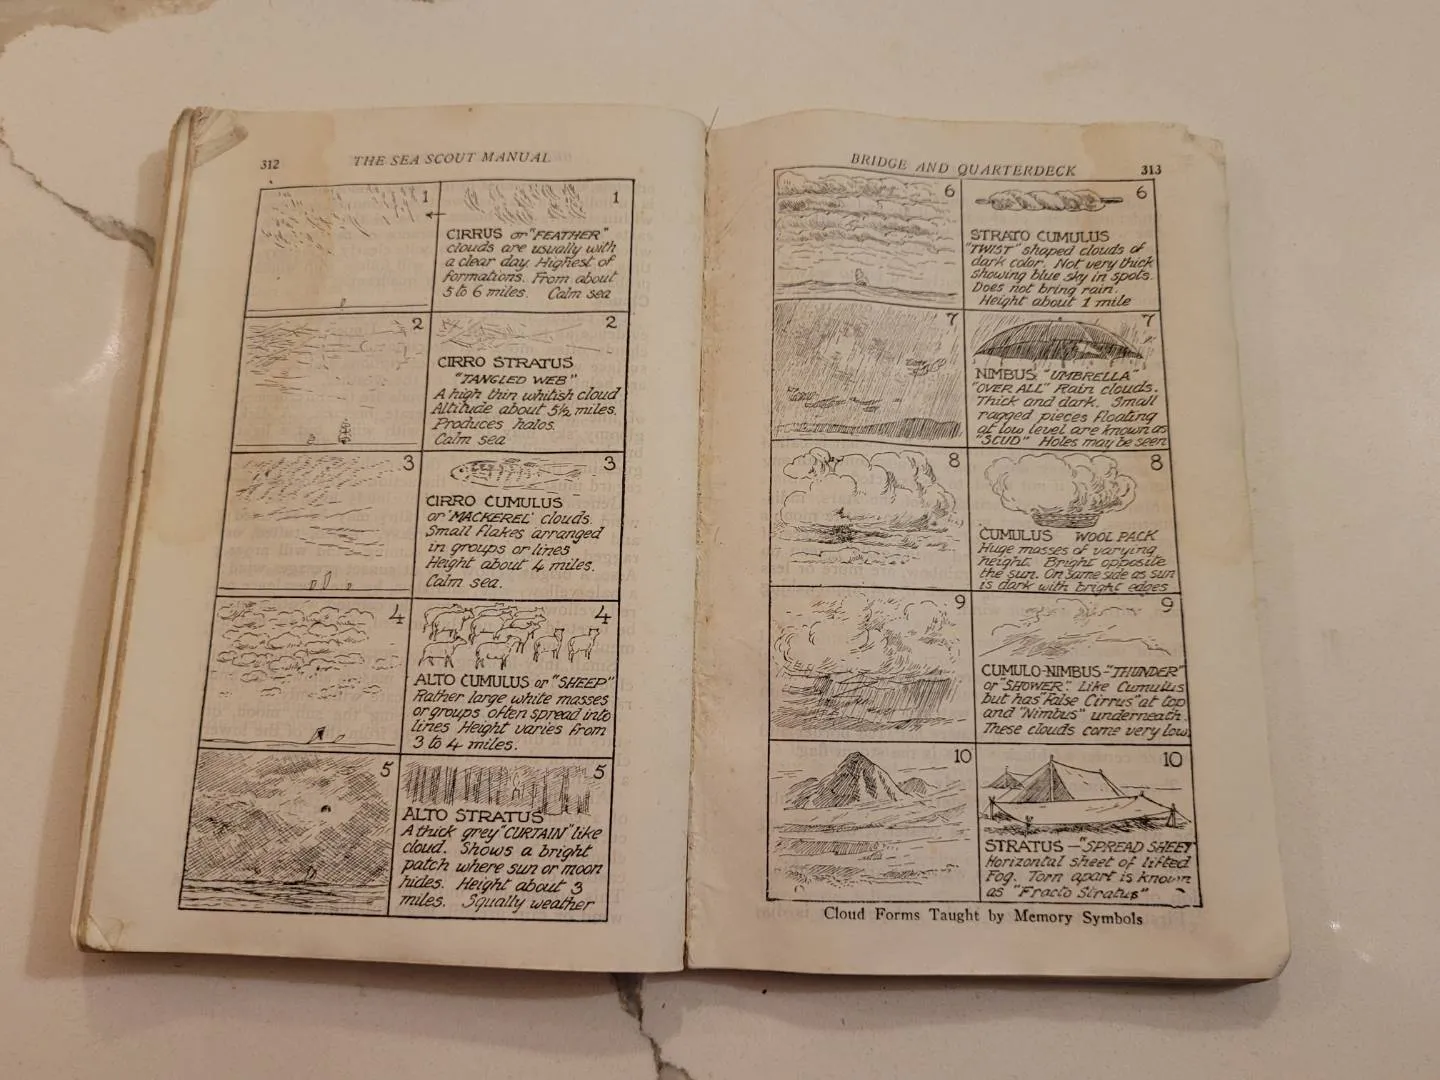 312
THE SEA SCOUT MANUAL
1
1
CIRRUS or "FEATHER"
clouds are usually with
a clear day. Highest of
formations. From about
5 to 6 miles. Calm sea
2
2
CIRRO STRATUS
"TANGLED WEB"
A high thin whitish cloud
Altitude about 5½ miles.
Produces halos.
Calm sea
3
3
CIRRO CUMULUS
or 'MACKEREL' clouds.
Small flakes arranged
in groups or lines
Height about 4 miles.
Calm sea.
4
4
ALTO CUMULUS or "SHEEP"
Rather large white masses
or groups often spread into
lines Height varies from
3 to 4 miles.
5
5
ALTO STRATUS
A thick grey "CURTAIN" like
cloud. Shows a bright
patch where sun or moon
hides. Height about 3
miles. Squally weather
BRIDGE AND QUARTERDECK
313
6
6
STRATO CUMULUS
"TWIST" shaped clouds of
dark color. Not very thick
showing blue sky in spots.
Does not bring rain.
Height about 1 mile
7
7
NIMBUS "UMBRELLA"
"OVER ALL" Rain clouds.
Thick and dark. Small
ragged pieces floating
at low level are known as
"SCUD" Holes may be seen
8
8
CUMULUS WOOL PACK
Huge masses of varying
height. Bright opposite
the sun. On same side as sun
is dark with bright edges
9
9
CUMULO-NIMBUS-"THUNDER"
or "SHOWER". Like Cumulus
but has "False Cirrus" at top
and "Nimbus" underneath.
These clouds come very low.
10
10
STRATUS — "SPREAD SHEET"
Horizontal sheet of lifted
Fog. Torn apart is known
as "Fracto Stratus"
Cloud Forms Taught by Memory Symbols